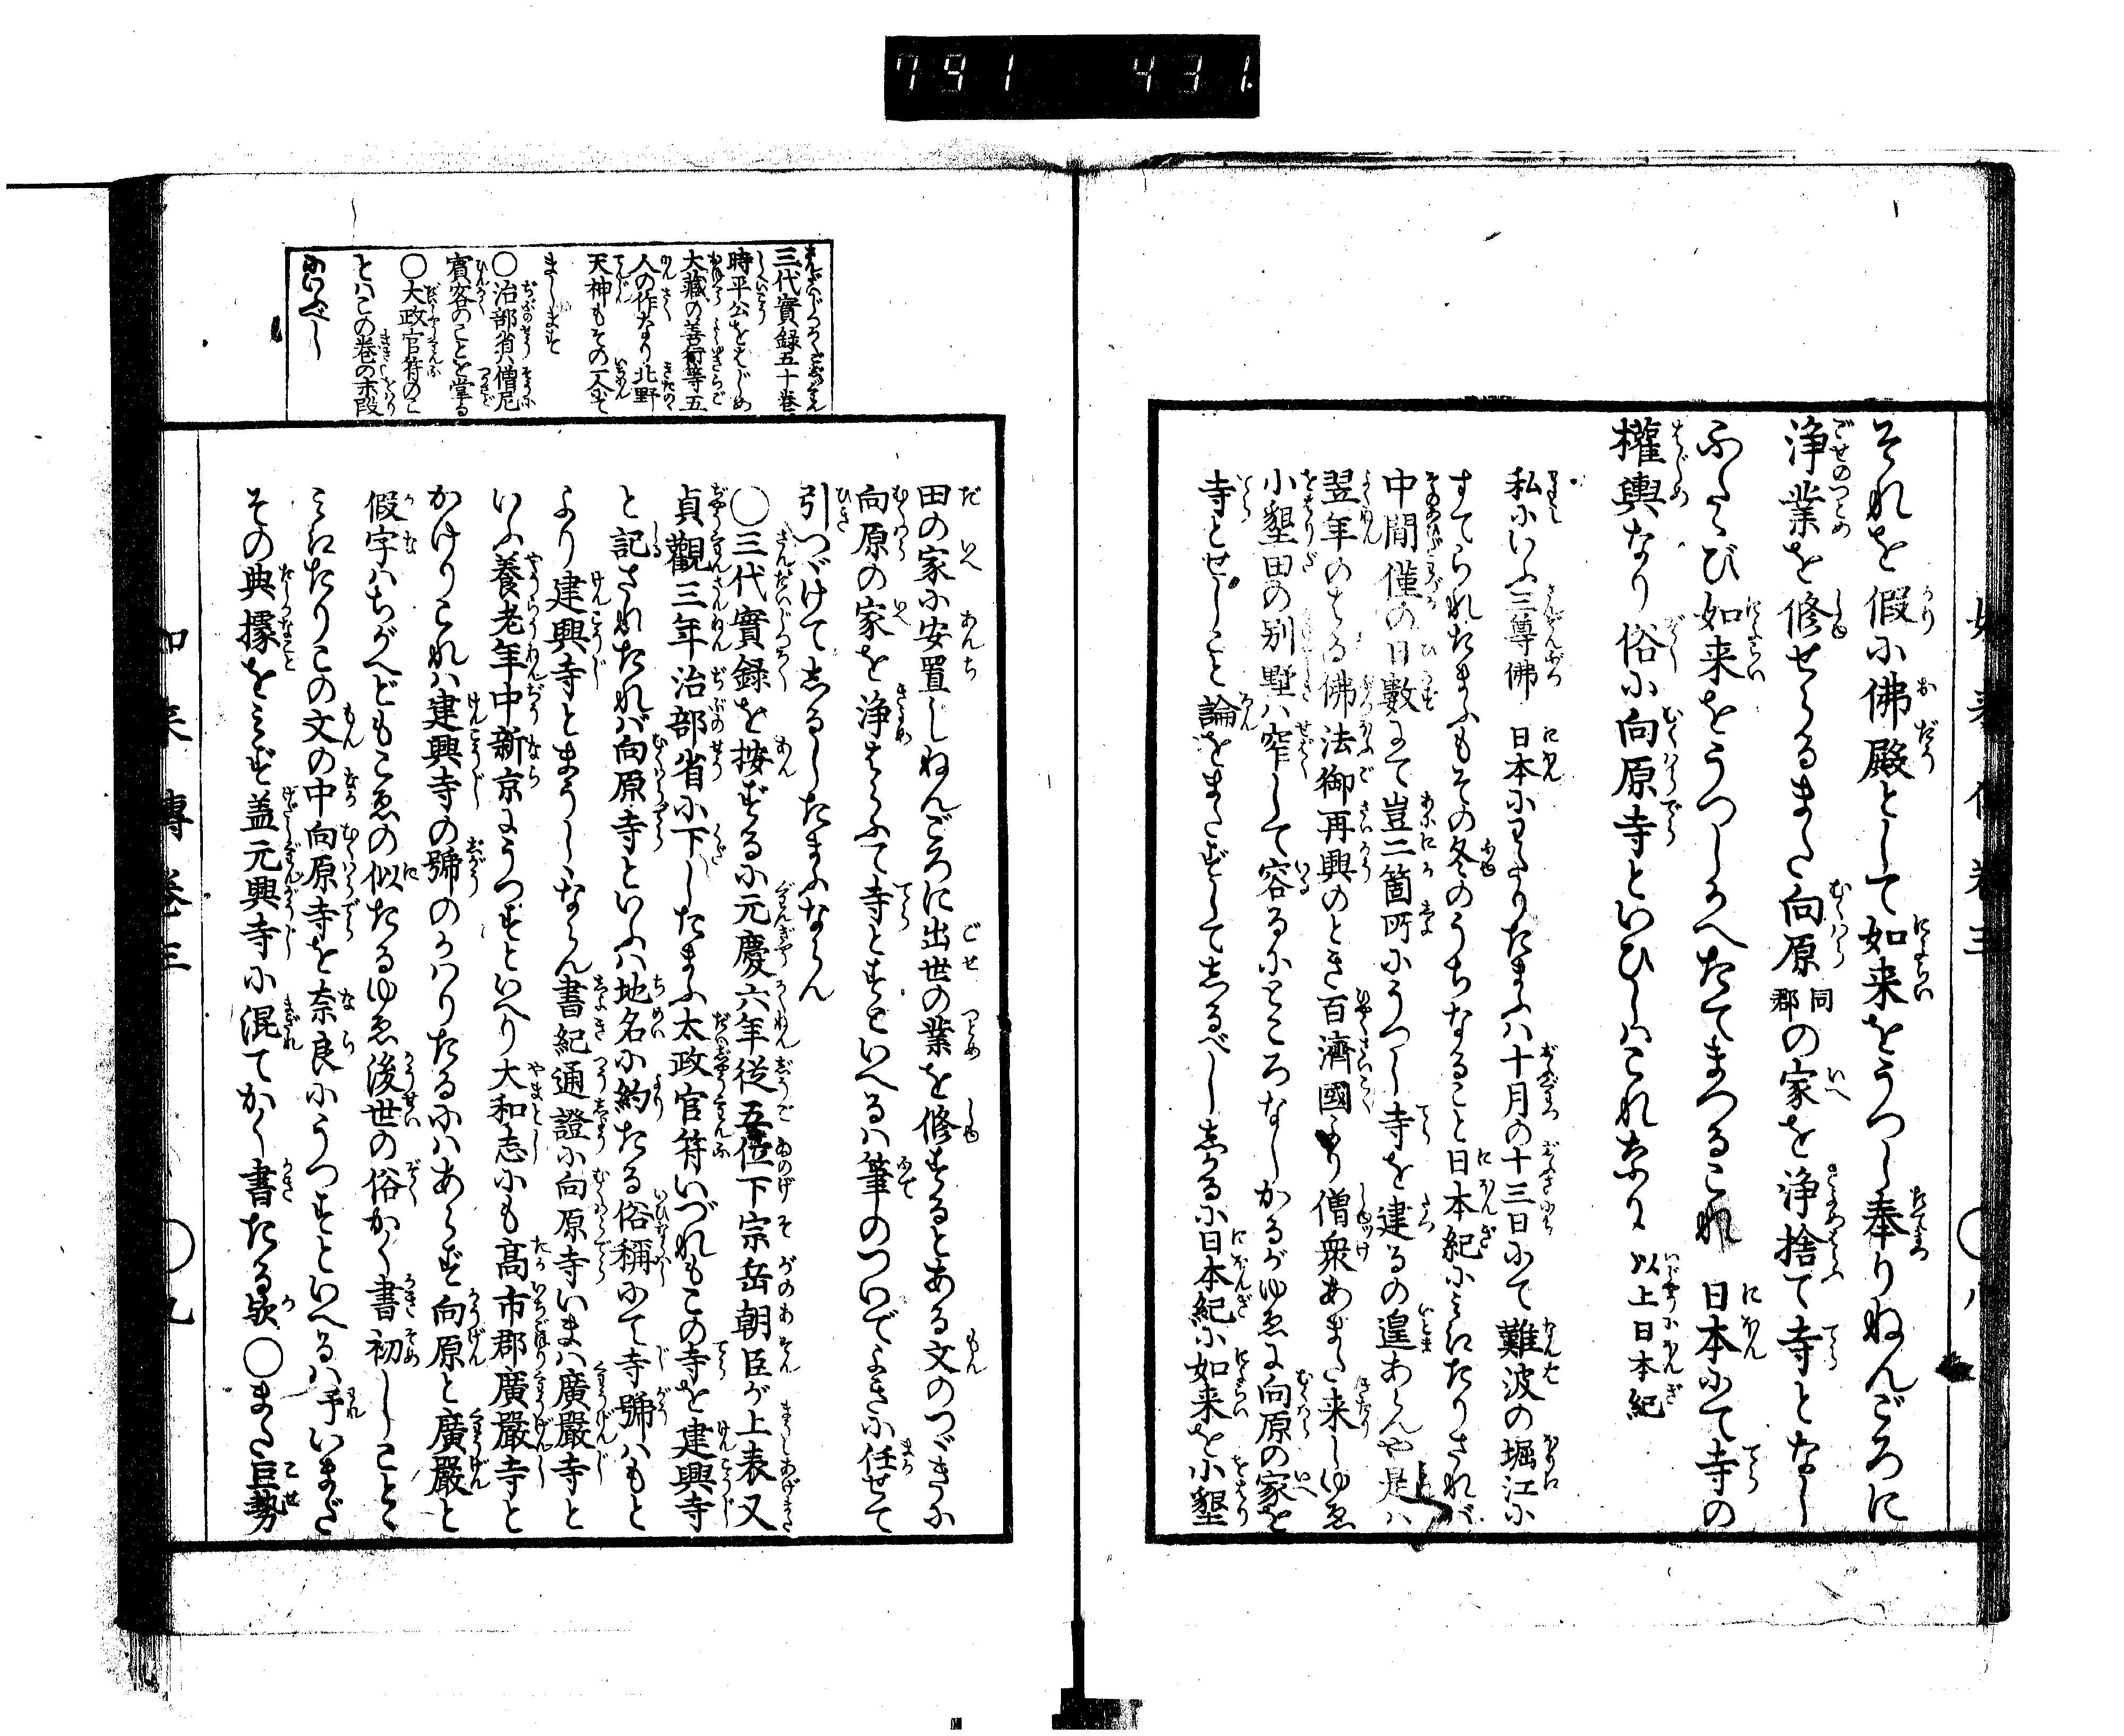 791 431.
それを假に佛殿として如来をうつし奉りねんごろに
浄業を修せらるまた向原同郡の家を浄捨て寺となし
ふたゝび如来をうつしかへたてまつるこれ日本にて寺の
權輿なり俗に向原寺といひしハこれなり以上日本紀
私にいふ三尊佛日本にわたりたまふハ十月の十三日にて難波の堀江に
すてられたまふもその冬のうちなること日本紀にミえたりされバ
中間僅の日數にて豈二箇所にうつし寺を建るの遑あらんや是ハ
翌年のはる佛法御再興のとき百濟國より僧衆あまた来しゆゑ
小墾田の别墅ハ窄して容るにところなしかるがゆゑに向原の家を
寺とせしこと論をまたずしてしるべししかるに日本紀に如来を小墾
田の家に安置しねんごろに出世の業を修するとある文のつゞきに
向原の家を浄はらふて寺とすといへるハ筆のついでよきに任せて
引つゞけてしるしたまふならん
〇三代實録を按ずるに元慶六年従五位下宗岳朝臣が上表又
貞觀三年治部省に下したまふ太政官符いづれもこの寺を建興寺
と記されたれバ向原寺といふハ地名に約たる俗稱にて寺號ハもと
より建興寺とまうしゝならん書紀通證に向原寺いまハ廣嚴寺と
いふ養老年中新京にうつすといへり大和志にも高市郡廣嚴寺と
かけりこれハ建興寺の號のかハりたるにハあらず向原と廣嚴と
假字ハちがへどもこゑの似たるゆゑ後世の俗かく書初しことゝ
ミえたりこの文の中向原寺を奈良にうつすといへるハ手いまだ
その典據をミず盖元興寺に混てかく書たる歟〇また巨勢
三代實録五十巻
時平公をはじめ
大藏の善行等五
人の作なり北野
天神もその一人にて
まします
〇治部省ハ僧尼
賓客のことを掌る
〇大政官符のこ
とハこの巻の末段
にいふべし